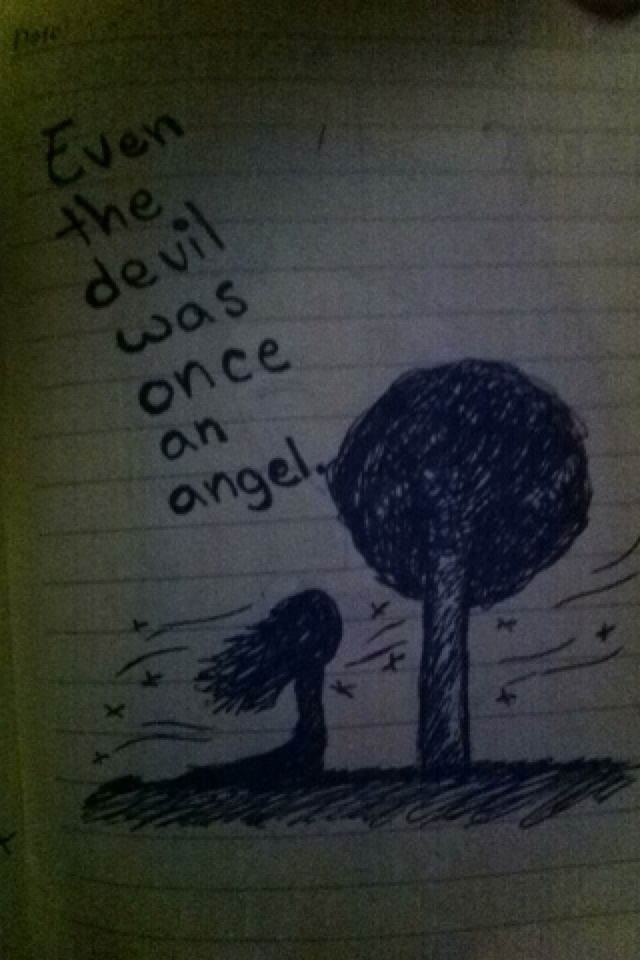 Date
Even
the
devil
was
once
an
angel.